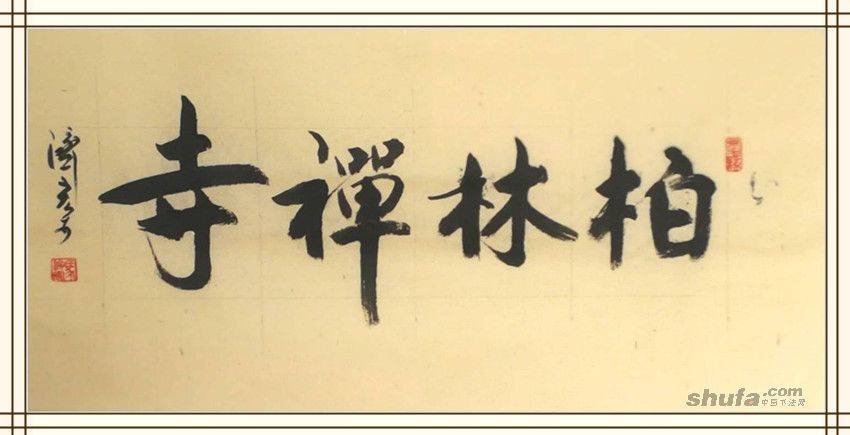 柏林禪寺
shufa.com
中国书法网